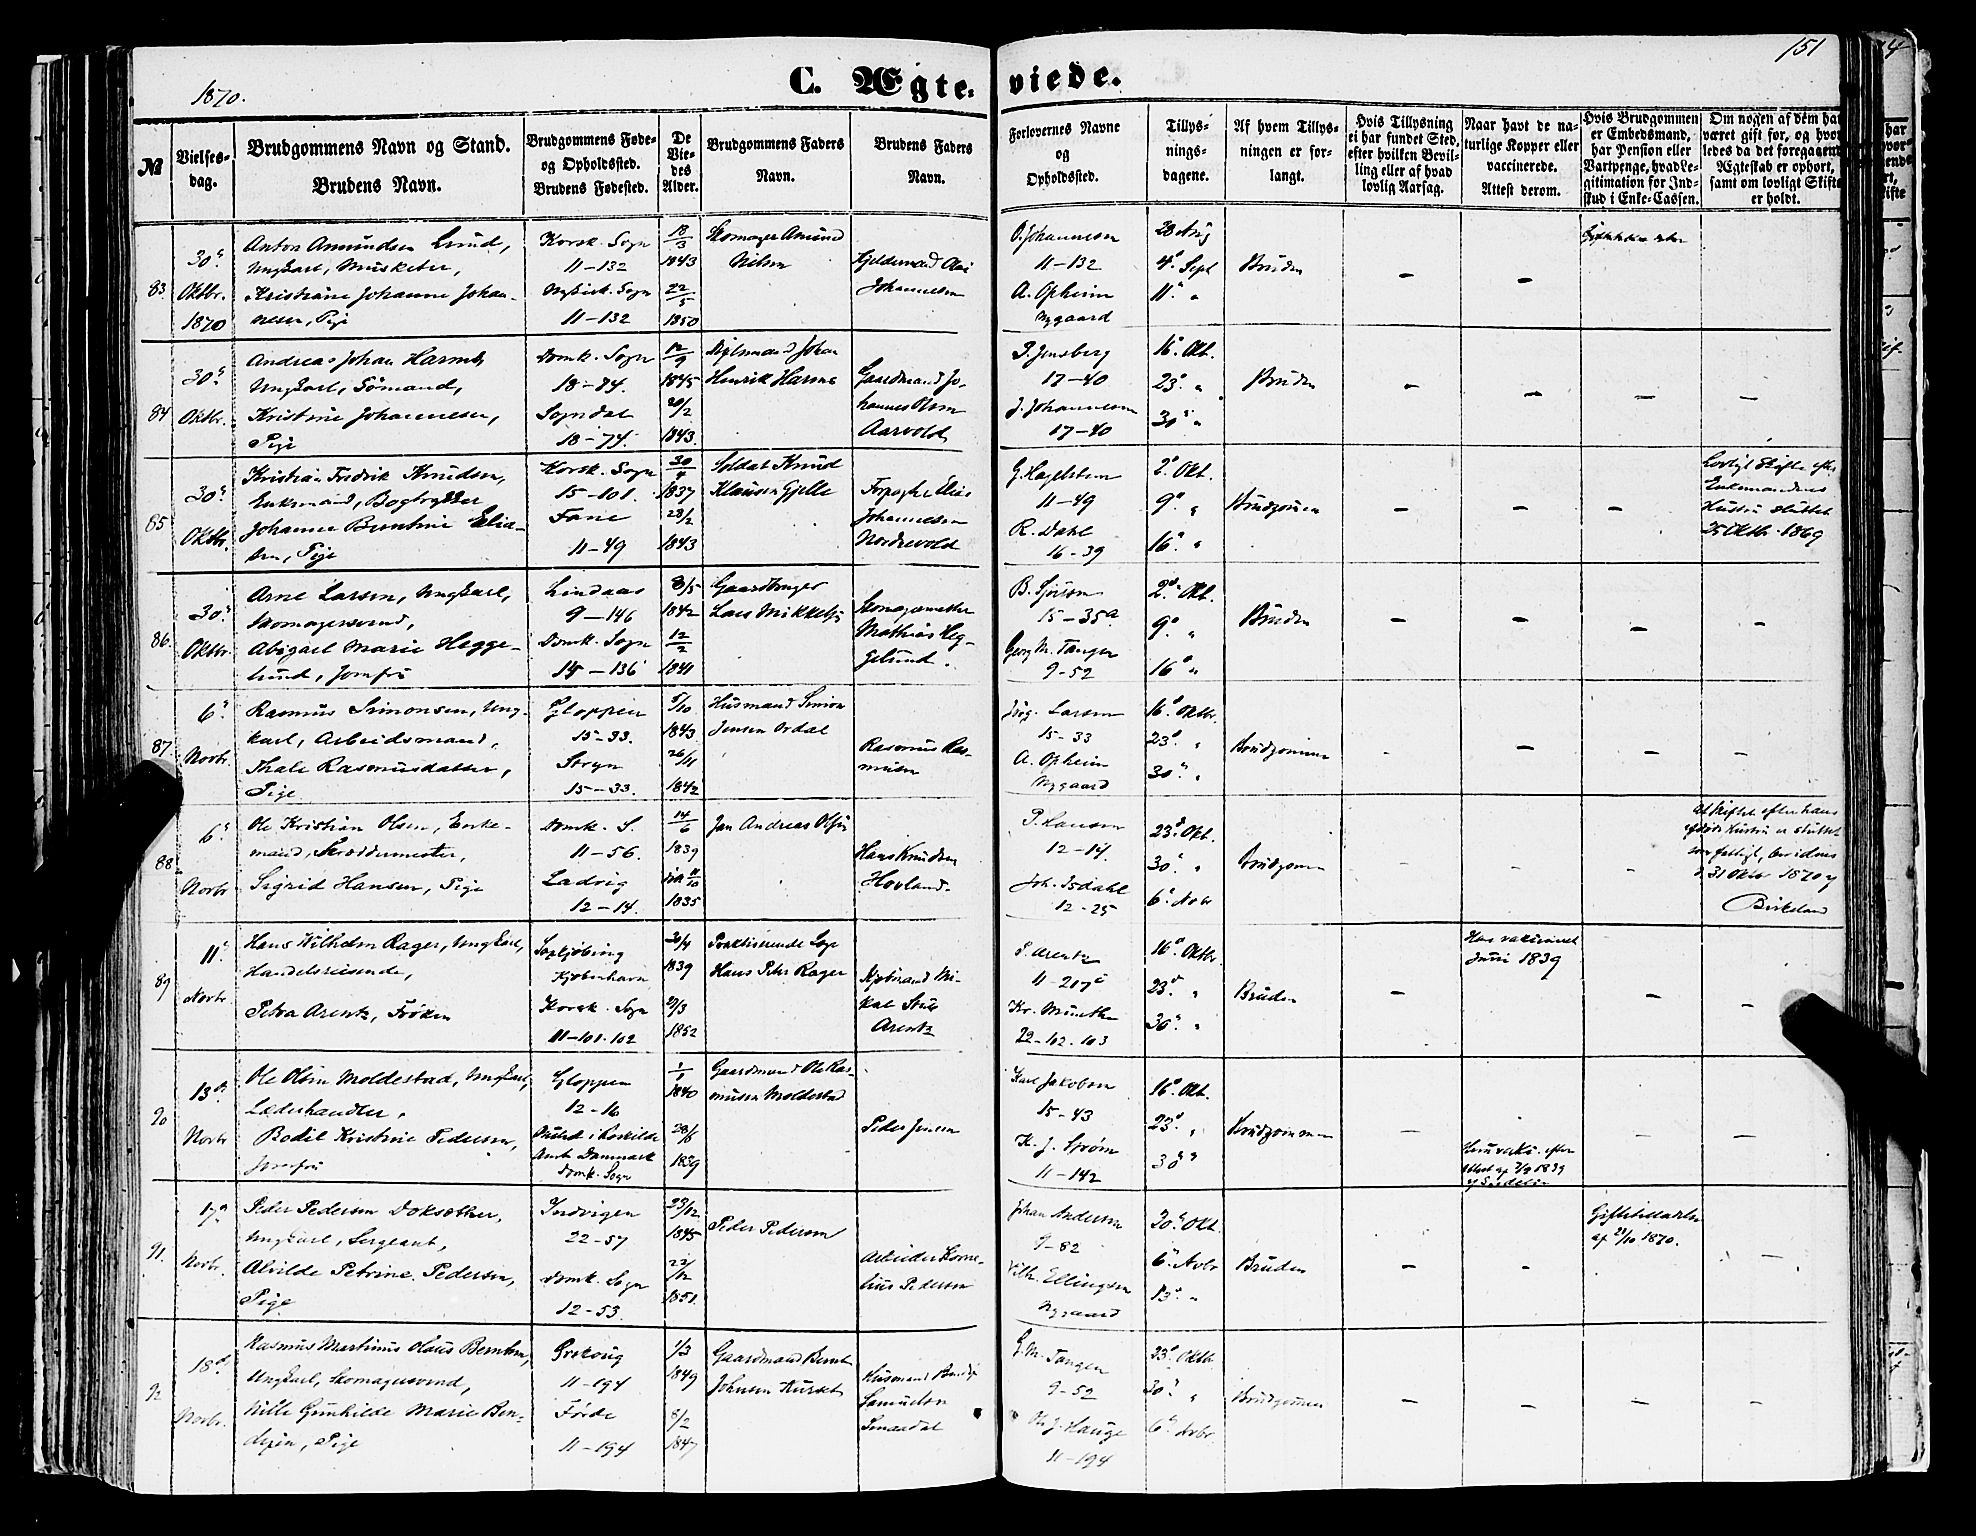 1870.
C. Ægte-viede.
151
№
Vielses-dag.
Brudgommens Navn og Stand.
Brudens Navn.
Brudgommens Føde- og Opholdssted.
Brudens Fødested.
De Viedes Alder.
Brudgommens Faders Navn.
Brudens Faders Navn.
Forlovernes Navne og Opholdssted.
Tillysningsdagene.
Af hvem Tillysningen er forlangt.
Hvis Tillysning ei har fundet Sted, efter hvilken Bevilling eller af hvad lovlig Aarsag.
Naar havt de naturlige Kopper eller vaccinerede. Attest derom.
Hvis Brudgommen er Embedsmand, har Pension eller Vartpenge, hvad Legitimation for Indskud i Enke-Cassen.
Om nogen af dem har været gift før, og hvorledes da det foregaaende Ægteskab er ophørt, samt om lovligt Skifte er holdt.
83
30 Oktbr. 1870
Anton Amundsen Lund,
Ungkarl, Musketer,
Kristiane Johanne Johannesen, Pige
Korsk. Sogn
11-132
Nykirk. Sogn
11-132
18/3 1843
22/5 1850
Skomager Amund Nilsen
Johannesen
O. Johannesen
11-132
A. Opheim
Nygaard
28 Aug
4 Sept
11 "
Bruden
84
30 Oktbr.
Andreas Johan Harms,
Ungkarl, Sømand,
Kristine Johannesen,
Pige
Domk. Sogn
18-74.
Sogndal
18-74.
12/9 1845
20/2 1843.
Johan Henrik Harms
Gaardmand Johannes Olsen Aarvold
P. Jensberg
17-40
J. Johannesen
17-40
16 Okt.
23 "
30 "
Bruden
85
30 Oktbr.
Kristian Fredrik Knudsen,
Enkemand, Bogtrykker
Johanne Berntine Eliasen, Pige
Korsk. Sogn
15-101.
Fane
11-49
1837
28/2 1843
Soldat Knud Klausen Gjelle
Elias Johannesen Nordrevold
G. Hagelsteen
11-49
R. Dahl
16-39
2 Okt.
9 "
16 "
Brudgommen
Lovligt Skifte efter Enkemandens Hustru sluttet 25 Oktbr. 1869
86
30 Oktbr.
Arne Larsen, Ungkarl,
Skomagersvend,
Abigael Marie Heggelund, Jomfru
Lindaas
9-146
Domk. Sogn
15-136
8/5 1842
12/2 1841
Gaardbruger Lars Mikkelsen
Skomagermester Mathias Heggelund.
15-35a
Georg M. Tangen
9-52
2 Okt.
9 "
16 "
Bruden
87
6 Novbr.
Rasmus Simonsen, Ungkarl, Arbeidsmand,
Thale Rasmusdatter,
Pige
Gloppen
15-33.
Stryn
15-33.
5/10 1843
26/11 1842
Husmand Simon Jensen Ordal
Rasmus Rasmusen
Larsen
15-33
A. Opheim
Nygaard
16 Oktbr.
23 "
30 "
Brudgommen
88
6 Novbr
Ole Kristian Olsen, Enkemand, Skreddermester,
Sigrid Hansen, Pige
Domk. S.
11-56.
Ladvig
12-14.
14/6 1839
1835
Jan Andreas Olsen
Hans Knudsen Hovland.
P. Hansen
12-14.
Joh. Isdahl
12-25
23 Okt.
30 "
6 Novbr
Brudgommen
At Skiftet efter hans afdøde Hustru er sluttet som fattigt, bevidnes
31 Oktbr 1870
Birkeland
89
11 Novbr
Hans Wilhelm Rager, Ungkarl,
Handelsreisende,
Petra Arentz, Frøken
Kjøbenhavn
Korsk. Sogn
11-101-102
30/4 1839
29/3 1852
Praktiserende Læge Hans Peter Rager
Kjøbmand Mikal Strus Arentz
P. Arentz
11-217c
Kr. Munthe
22-102-103
16 Oktbr.
23 "
30 "
Bruden
Han vaksineret Juni 1839
90
13 Novbr
Ole Olsen Moldestad, Ungkarl,
Læderhandler.
Bodil Kristine Pedersen,
Jomfru
Gloppen
12-16
i Roskilde Amt Danmark
Domk. Sogn
1/1 1840
28/6 1839
Gaardmand Ole Rasmusen Moldestad
Peder Jensen
Karl Jakobsen
15-43
K. J. Strøm
11-142
16 Okt.
23 "
30 "
Brudgommen
91.
17 Novbr.
Peder Pedersen Doksæther,
Ungkarl, Sergeant,
Alvilde Petrine Pedersen,
Pige
Indvigen
22-57
Domk. Sogn
12-53.
23/12 1845
22/12 1851.
Peder Pedersen
Arbeider Kornelius Pedersen
Johan Andersen
9-82
Vilh. Ellingsen
Nygaard
30 Okt.
6 Novbr
13 "
Bruden
Giftetilladelse af 21/10 1870.
92
18 Novbr.
Rasmus Martinus Olaus Berntsen,
Ungkarl, Skomagersvend,
Nille Gunhilde Marie Bendixen, Pige
Ørskoug
11-194
Førde
11-194
1/3 1849
8/2 1847
Gaardmand Bernt Johnsen Kurset
Husmand Bendix Samuelsen
G. M. Tangen
9-52
Ole J. Hauge
11-194
23 Oktbr
30 "
6 Novbr.
Brudgommen